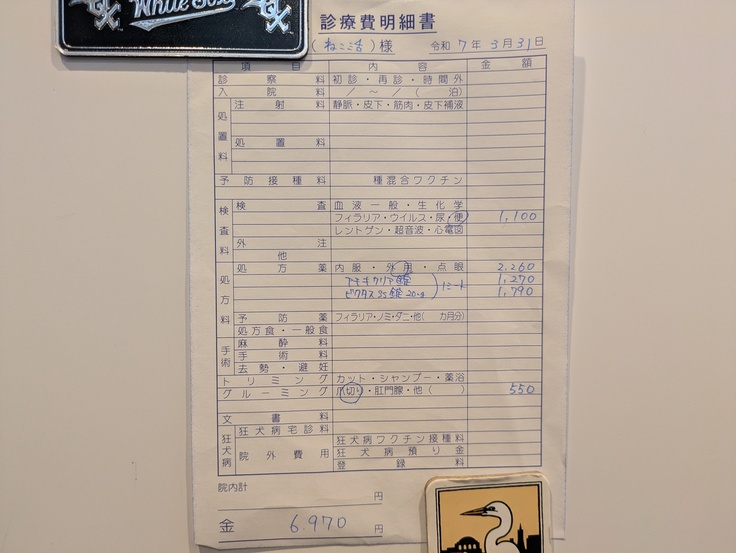 White Sox
診療費明細書
( ねこ活 ) 様 令和 7 年 3 月 31 日
項目 内容 金額
診察料 初診・再診・時間外
入院料 / ～ / ( 泊)
処置料 注射料 静脈・皮下・筋肉・皮下補液
処置料
予防接種料 種混合ワクチン
検査料 検査 血液一般・生化学
フィラリア・ウイルス・尿・便 1,100
レントゲン・超音波・心電図
外注
他
処方料 処方薬 内服・外用・点眼 2,260
1シート 1,270
ビクタス 20mg 1,790
予防薬 フィラリア・ノミ・ダニ・他( カ月分)
処方食・一般食
手術 麻酔料
手術料
去勢・避妊
トリミング カット・シャンプー・薬浴
グルーミング 爪切り・肛門腺・他( ) 550
文書料
狂犬病 狂犬病宅診料
院外費用 狂犬病ワクチン接種料
狂犬病預り金
登録料
院内計
円
金 6,970 円